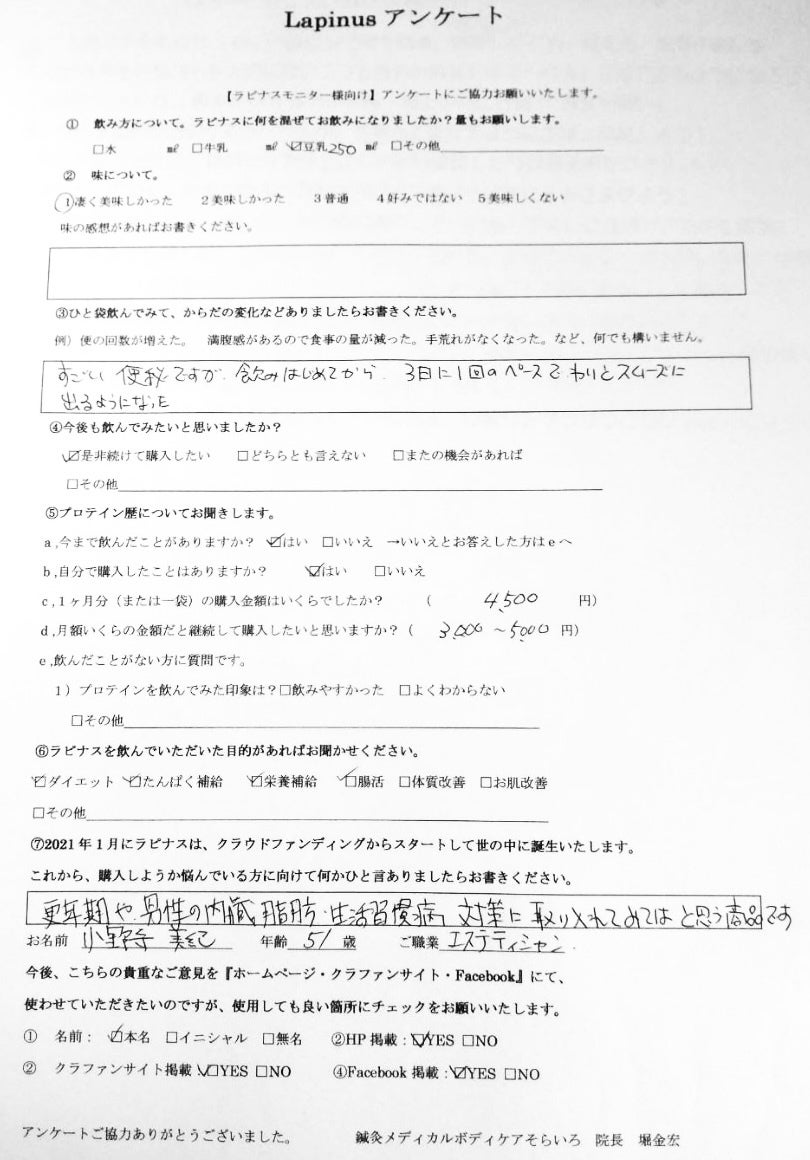 Lapinus アンケート
【ラピナスモニター様向け】アンケートにご協力お願いいたします。
① 飲み方について。ラピナスに何を混ぜてお飲みになりましたか？量もお願いします。
□水 ㎖ □牛乳 ㎖ ☑豆乳250 ㎖ □その他
② 味について。
①凄く美味しかった 2美味しかった 3普通 4好みではない 5美味しくない
味の感想があればお書きください。
③ひと袋飲んでみて、からだの変化などありましたらお書きください。
例）便の回数が増えた。 満腹感があるので食事の量が減った。手荒れがなくなった。など、何でも構いません。
すごい 便秘ですが、飲みはじめてから、3日に1回のペースで わりとスムーズに
出るようになった
④今後も飲んでみたいと思いましたか？
☑是非続けて購入したい □どちらとも言えない □またの機会があれば
□その他
⑤プロテイン歴についてお聞きします。
a,今まで飲んだことがありますか？ ☑はい □いいえ →いいえとお答えした方はeへ
b,自分で購入したことはありますか？ ☑はい □いいえ
c,1ヶ月分（または一袋）の購入金額はいくらでしたか？ （ 4,500 円）
d,月額いくらの金額だと継続して購入したいと思いますか？（ 3,000 〜5,000 円）
e,飲んだことがない方に質問です。
1）プロテインを飲んでみた印象は？□飲みやすかった □よくわからない
□その他
⑥ラピナスを飲んでいただいた目的があればお聞かせください。
☑ダイエット ☑たんぱく補給 ☑栄養補給 ☑腸活 □体質改善 □お肌改善
□その他
⑦2021年1月にラピナスは、クラウドファンディングからスタートして世の中に誕生いたします。
これから、購入しようか悩んでいる方に向けて何かひと言ありましたらお書きください。
更年期や、男性の内臓脂肪・生活習慣病 対策に 取り入れてみてはと思う商品です
お名前 小野寺 美紀 年齢 51 歳 ご職業 エステティシャン
今後、こちらの貴重なご意見を『ホームページ・クラファンサイト・Facebook』にて、
使わせていただきたいのですが、使用しても良い箇所にチェックをお願いいたします。
① 名前： ☑本名 □イニシャル □無名 ②HP 掲載：☑YES □NO
② クラファンサイト掲載 ☑YES □NO ④Facebook 掲載：☑YES □NO
アンケートご協力ありがとうございました。 鍼灸メディカルボディケアそらいろ 院長 堀金宏